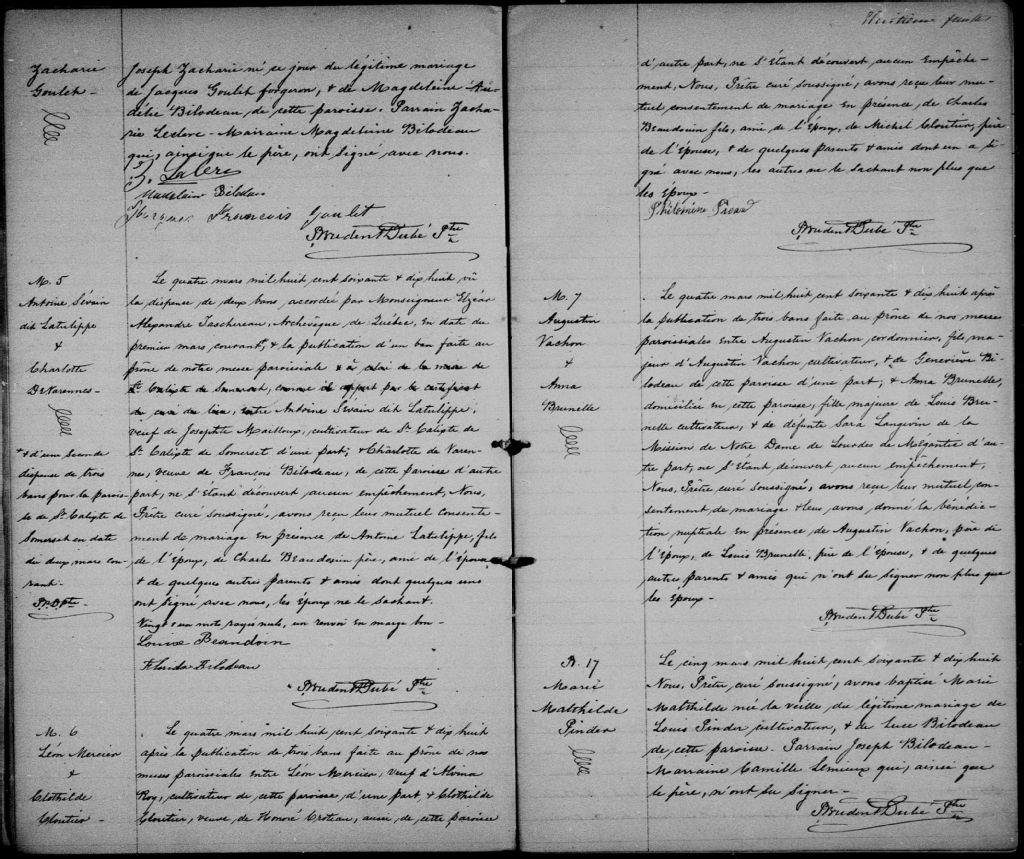 Zacharie
Goulet
Joseph Zacharie né ce jour du légitime mariage
de Jacques Goulet forgeron, & de Magdeleine
Bilodeau, de cette paroisse. Parrain Zacha-
rie Leclerc - Marraine Magdeleine Bilodeau
qui, ainsi que le père, ont signé avec nous.
Z. Leclerc
Madelaine Bilodeau
François Goulet
Prudent Dubé Ptre
M. 5
Antoine Sévain
dit Latulippe
&
Charlotte
DeVarennes-
+ & d'une seconde
dispense de trois
bans pour la parois-
se de St Calixte de
Somerset en date
du deux mars cou-
rant-
Pr. D. Ptre-
Le quatre mars mil huit cent soixante & dix huit vû
la dispense de deux bans, accordée par Monseigneur Elzéar
Alexandre Taschereau, Archevêque de Québec, en date du
premier mars courant, & la publication d'un ban faite au
prône de notre messe paroissiale & à celui de la messe de
St Calixte de Somerset, comme il appert par le certificat
du curé du lieu, entre Antoine Sévain dit Latulippe,
veuf de Josephte Mailloux, cultivateur de St Calixte de
St Calixte de Somerset d'une part; & Charlotte de Varen-
nes, veuve de François Bilodeau, de cette paroisse d'autre
part, ne s'étant découvert aucun empêchement, Nous,
Prêtre curé soussigné, avons reçu leur mutuel consente-
ment de mariage en présence de Antoine Latulippe, fils
de l'Époux, de Charles Beaudouin père, ami de l'Épouse
& de quelques autres parents & amis dont quelques uns
ont signé avec nous, les époux ne le sachant.
Vingt-un mots rayés nuls, un renvoi en marge bon-
Louise Beaudoin
Florida Bilodeau
Prudent Dubé Ptre
M. 6
Léon Mercier
&
Clothilde
Cloutier-
Le quatre mars mil huit cent soixante & dix huit
après la publication de trois bans faite au prône de nos
messes paroissiales entre Léon Mercier, veuf d'Alvina
Roy, cultivateur de cette paroisse, d'une part, & Clothilde
Cloutier, veuve de Honoré Croteau, aussi de cette paroisse
d'autre part, ne s'étant découvert aucun Empêche-
ment, Nous, Prêtre curé soussigné, avons reçu leur mu-
tuel consentement de mariage en présence, de Charles
Beaudouin fils, ami de l'époux, de Michel Cloutier, père
de l'Épouse, & de quelques parents & amis dont un a si-
gné avec nous, les autres ne le sachant non plus que
les Époux-
Philomène
Prudent Dubé Ptre
M. 7
Augustin
Vachon
&
Anna
Brunelle
Le quatre mars mil huit cent soixante & dix huit après
la publication de trois bans faite au prône de nos messes
paroissiales entre Augustin Vachon, cordonnier, fils ma-
jeur d'Augustin Vachon cultivateur, & de Geneviève Bi-
lodeau de cette paroisse d'une part; & Anna Brunelle,
domiciliée en cette paroisse, fille majeure de Louis Bru-
nelle cultivateur, & de défunte Sara Langevin de la
Mission de Notre Dame de Lourdes de Mégantic d'au-
tre part, ne s'étant découvert aucun empêchement,
Nous, Prêtre curé soussigné, avons reçu leur mutuel con-
sentement de mariage & leur avons donné la bénédic-
tion nuptiale en présence de Augustin Vachon, père de
l'époux, de Louis Brunelle, père de l'épouse, & de quelques
autres parents & amis qui n'ont su signer non plus que
les Époux-
Prudent Dubé Ptre
B. 17
Marie
Malthilde
Pinder
Le cinq mars mil huit cent soixante & dix huit
Nous, Prêtre curé soussigné, avons baptisé Marie
Malthilde née la veille du légitime mariage de
Louis Pinder cultivateur, & de Luce Bilodeau
de cette paroisse. Parrain Joseph Bilodeau-
Marraine Camille Lemieux qui, ainsi que
le père, n'ont su signer-
Prudent Dubé Ptre